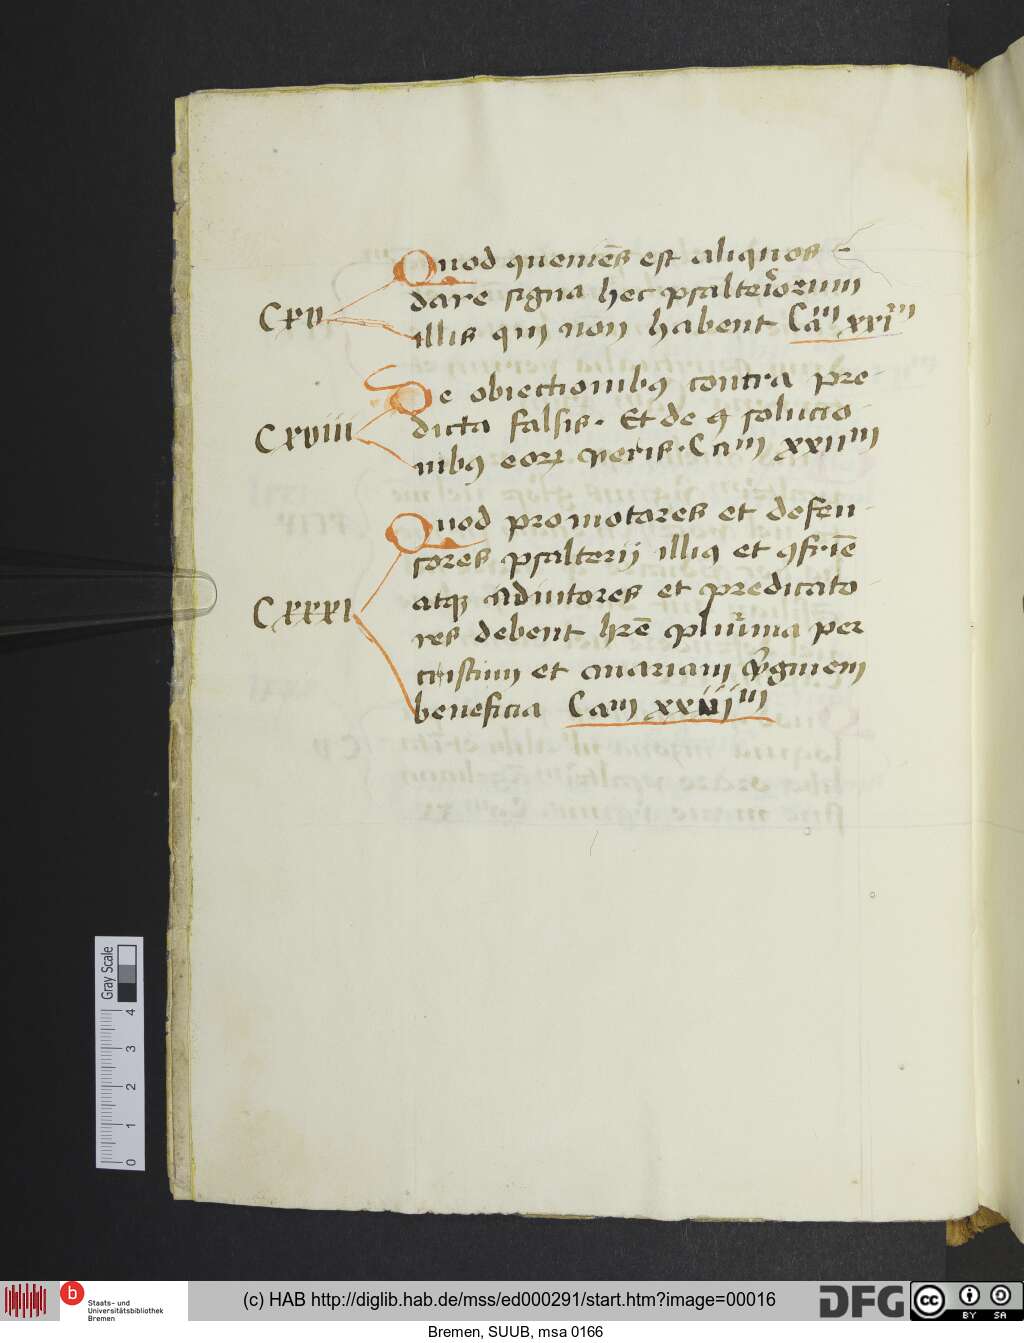 Quod queniēs est aliquos -
dare signa hec psalterior̄um
Cxv illis qui non habent Cam xxim
De obiectionibꝫ contra pre-
Cxviiii dicta falsis. Et de qꝫ solucio-
nibꝫ eorꝝ veris. Cam xxiim
Quod promotores et defen-
sores psalterij illiꝰ et ꝯfr̄iē
Cxxxi atqꝫ adiutores et predicato
res debent hr̄e plur̄ima per
cristum et mariam v̄ginem
beneficia Cam xxiijm
Gray Scale
4
3
2
1
0
b
Staats- und
Universitätsbibliothek
Bremen
(c) HAB http://diglib.hab.de/mss/ed000291/start.htm?image=00016
DFG
cc
BY SA
Bremen, SUUB, msa 0166